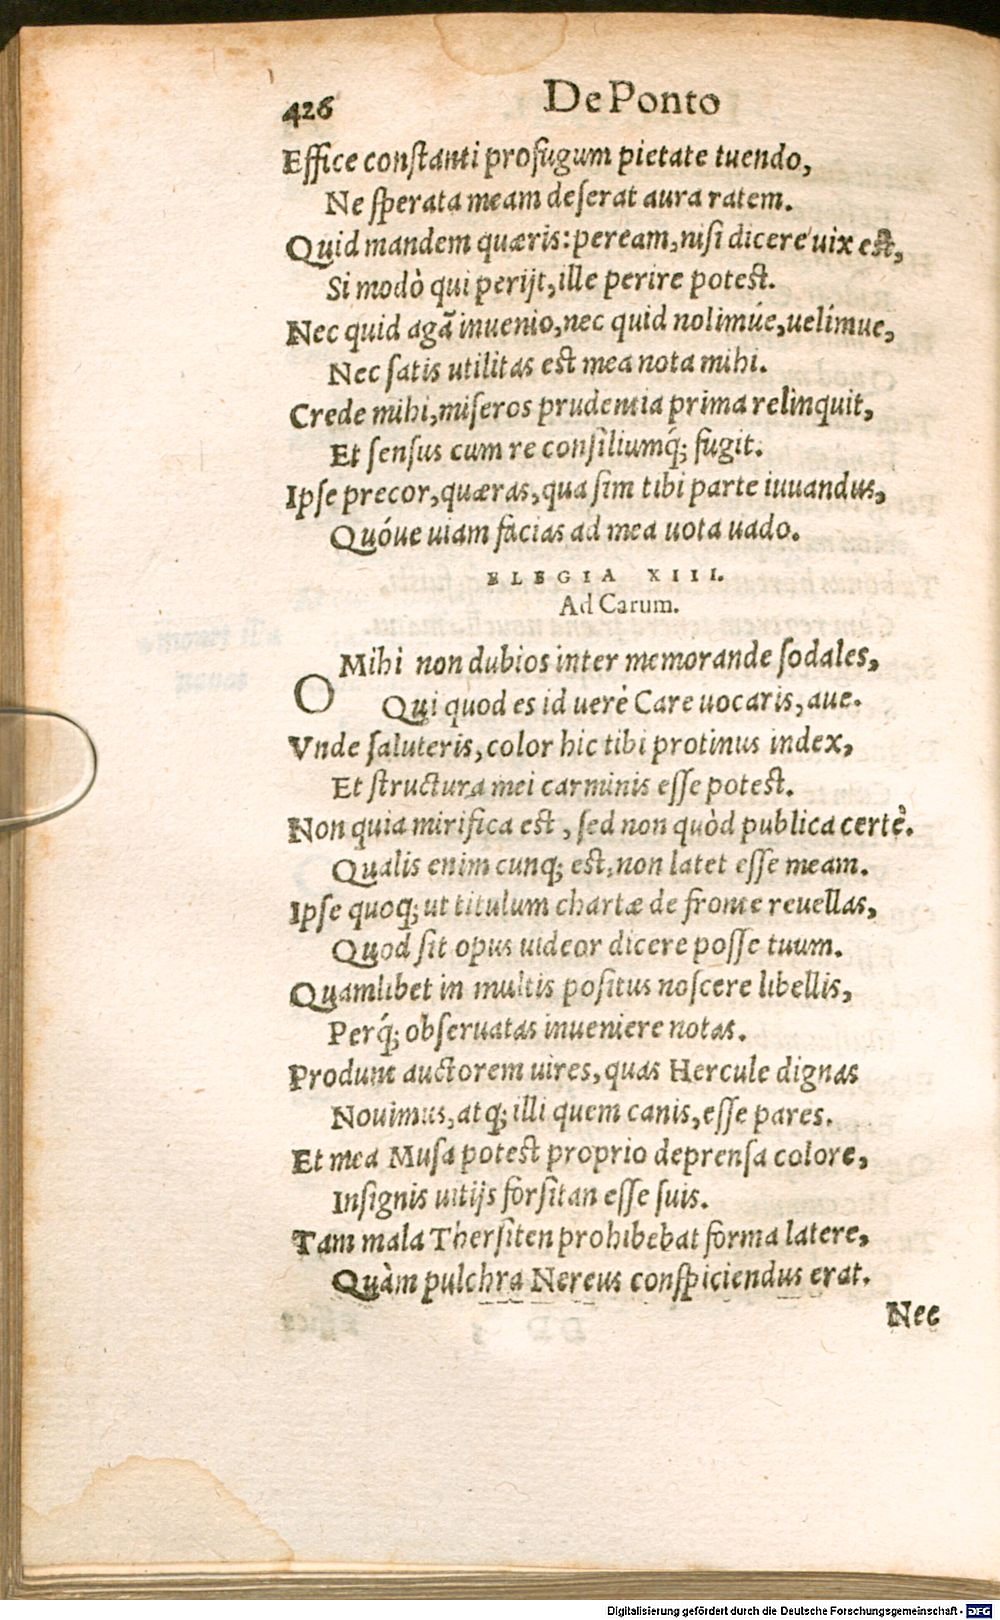 426 De Ponto
Efficе conſtanti profugum pietate tuendo,
Ne ſperata meam deſerat aura ratem.
Quid mandem quæris: peream, niſi dicere uix eſt,
Si modò qui perijt, ille perire poteſt.
Nec quid agā inuenio, nec quid nolimúe, uelímue,
Nec ſatis utilitas eſt mea nota mihi.
Crede mihi, miſeros prudentia prima relinquit,
Et ſenſus cum re conſiliumq́; fugit.
Ipſe precor, quæras, qua ſim tibi parte iuuandus,
Quóue uiam facias ad mea uota uado.
ELEGIA XIII.
Ad Carum.
O Mihi non dubios inter memorande ſodales,
Qui quod es id uerè Care uocaris, aue.
Vnde ſaluteris, color hic tibi protinus index,
Et ſtructura mei carminis eſſe poteſt.
Non quia mirifica eſt, ſed non quòd publica certè.
Qualis enim cunq; eſt, non latet eſſe meam.
Ipſe quoq; ut titulum chartæ de fronte reuellas,
Quod ſit opus uideor dicere poſſe tuum.
Quamlibet in multis poſitus noſcere libellis,
Perq́; obſeruatas inueniere notas.
Produnt auctorem uires, quas Hercule dignas
Nouimus, atq; illi quem canis, eſſe pares.
Et mea Muſa poteſt proprio deprenſa colore,
Inſignis uitijs forſitan eſſe ſuis.
Tam mala Therſiten prohibebat forma latere,
Quàm pulchra Nereus conſpiciendus erat.
Nec
Digitalisierung gefördert durch die Deutsche Forschungsgemeinschaft - DFG